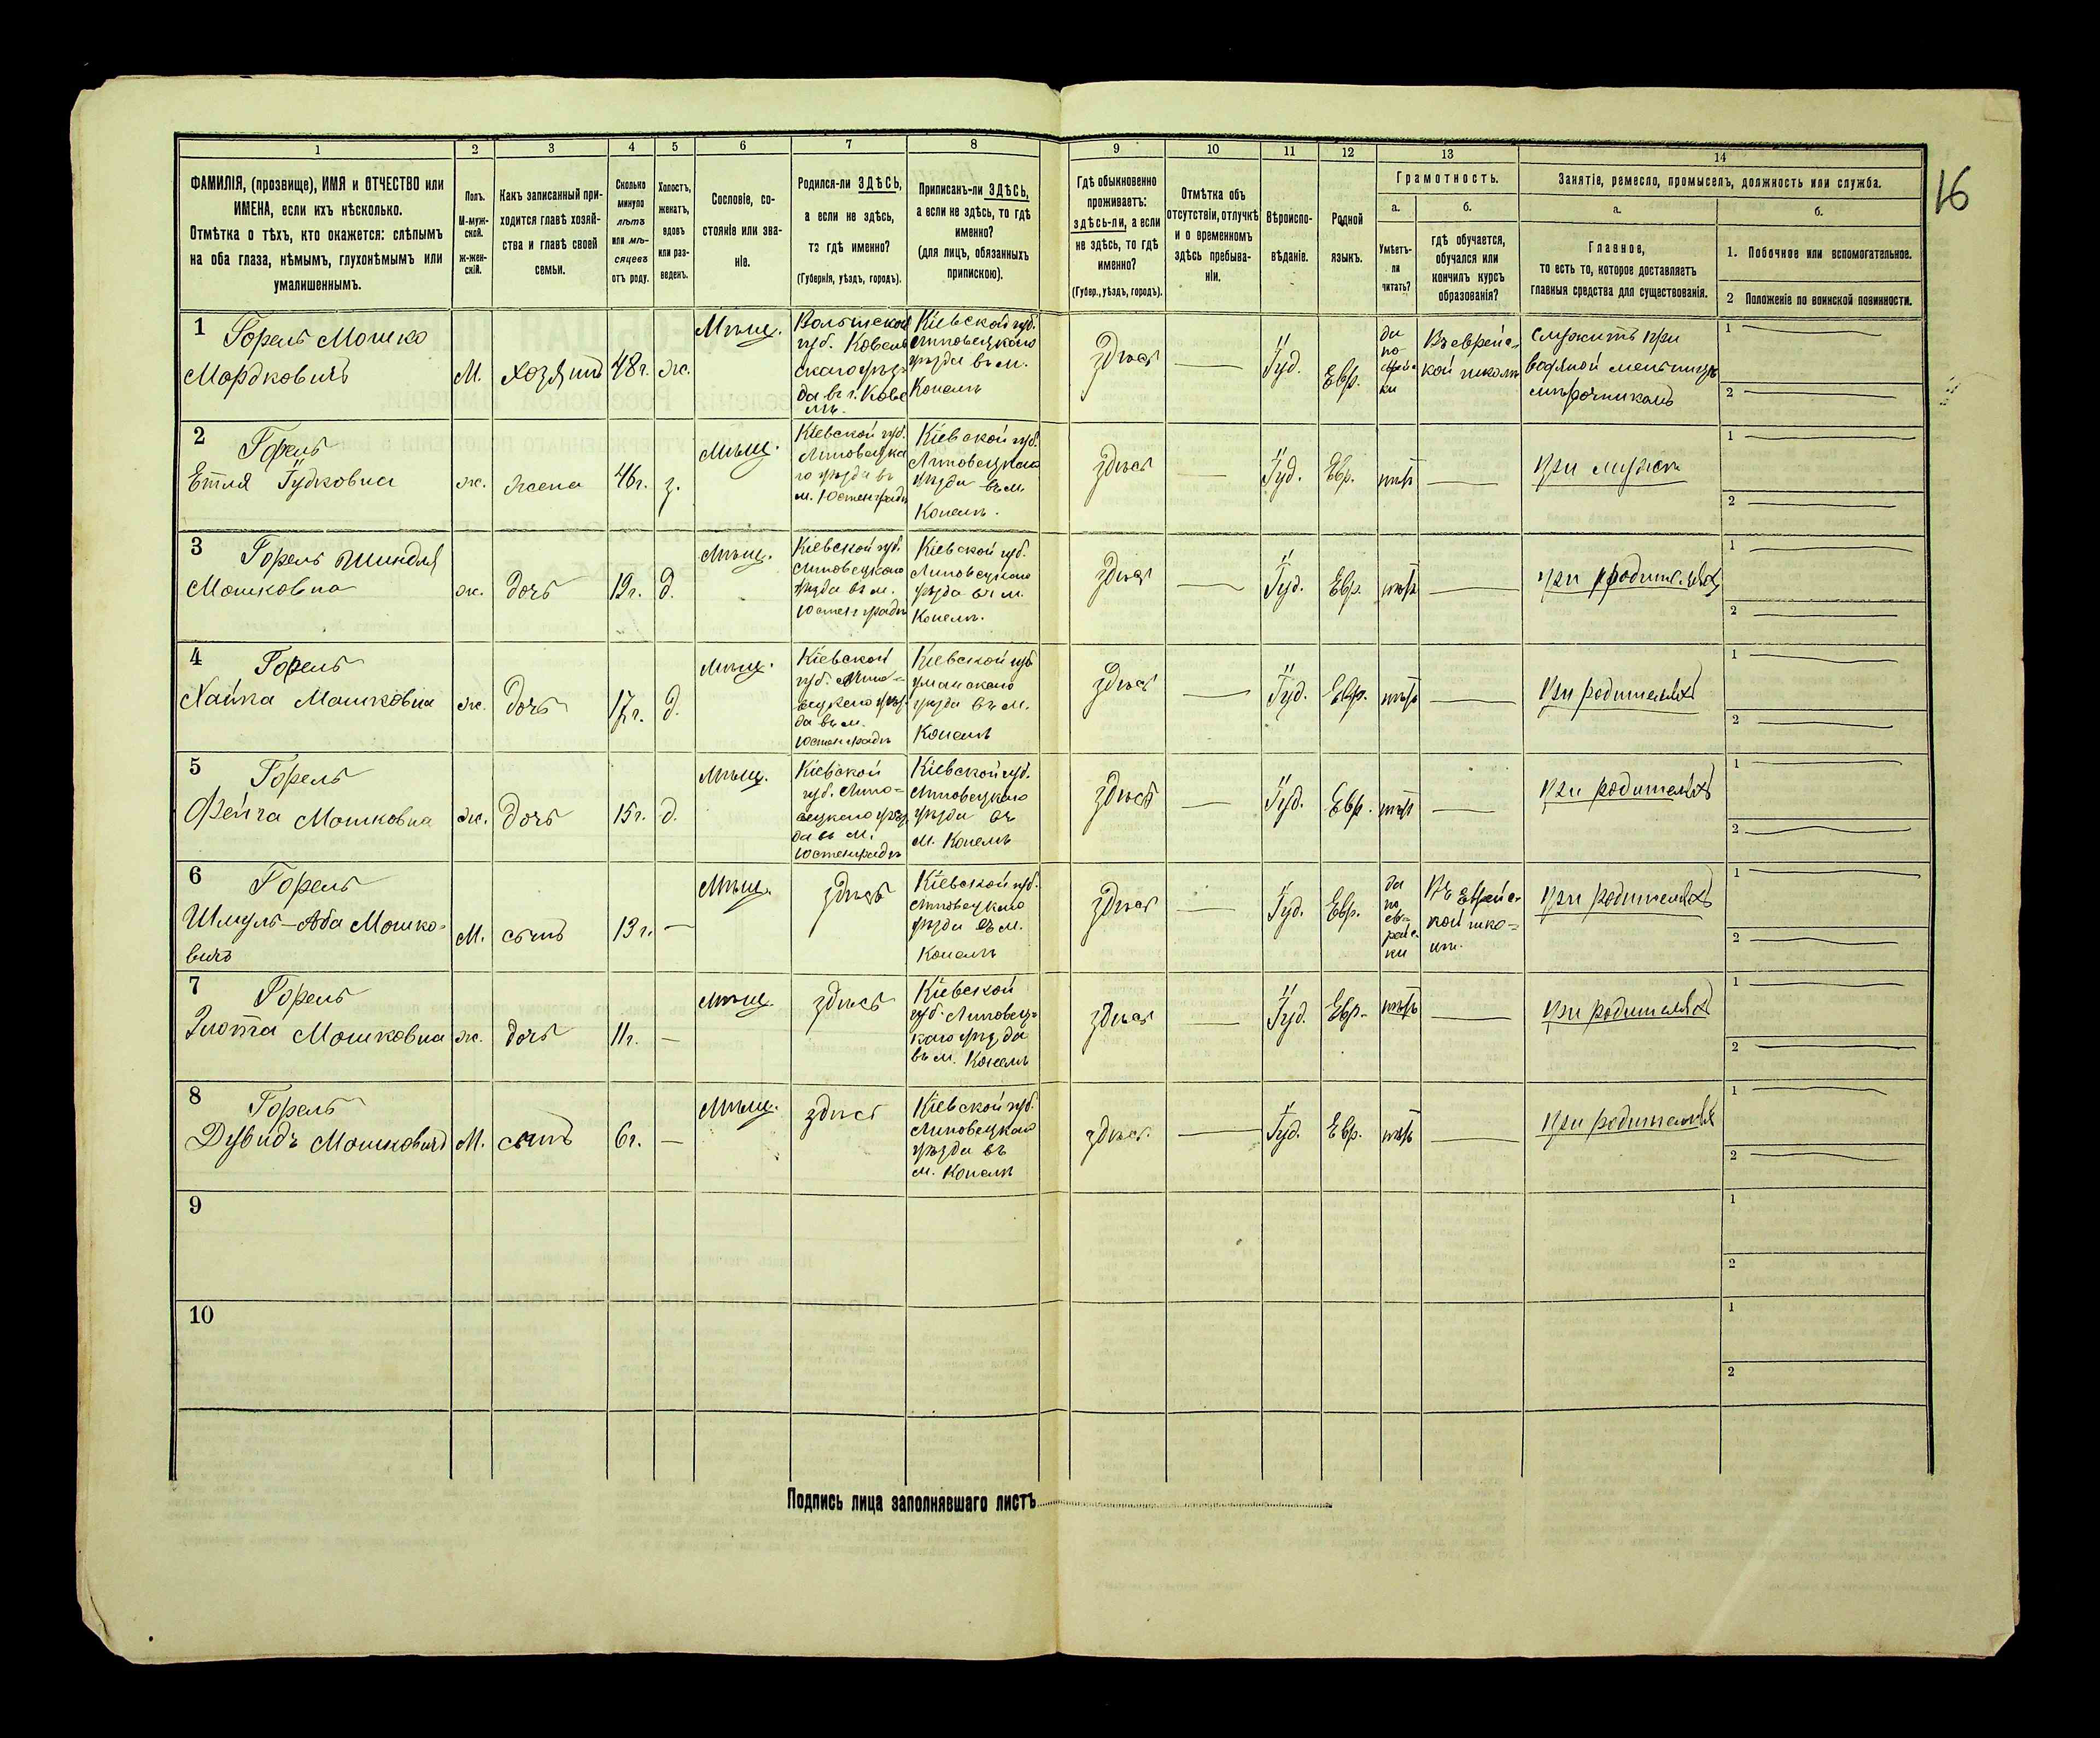 16
1 2 3 4 5 6 7 8 9 10 11 12 13 14
ФАМИЛІЯ, (прозвище), ИМЯ и ОТЧЕСТВО или
ИМЕНА, если ихъ нѣсколько.
Отмѣтка о тѣхъ, кто окажется: слѣпымъ
на оба глаза, нѣмымъ, глухонѣмымъ или
умалишеннымъ.
Полъ.
М-муж-
ской.
Ж-жен-
скій.
Какъ записанный при-
ходится главѣ хозяй-
ства и главѣ своей
семьи.
Сколько
минуло
лѣтъ
или мѣ-
сяцевъ
отъ роду.
Холостъ,
женатъ,
вдовъ
или раз-
веденъ.
Сословіе, со-
стояніе или зва-
ніе.
Родился-ли ЗДѢСЬ,
а если не здѣсь,
то гдѣ именно?
(Губернія, уѣздъ, городъ).
Приписанъ-ли ЗДѢСЬ,
а если не здѣсь, то гдѣ
именно?
(для лицъ, обязанныхъ
припискою).
Гдѣ обыкновенно
проживаетъ:
здѣсь-ли, а если
не здѣсь, то гдѣ
именно?
(Губер., уѣздъ, городъ).
Отмѣтка объ
отсутствіи, отлучкѣ
и о временномъ
здѣсь пребыва-
ніи.
Вѣроиспо-
вѣданіе.
Родной
языкъ.
Грамотность.
а.
Умѣетъ-
ли
читать?
б.
гдѣ обучается,
обучался или
кончилъ курсъ
образованія?
Занятіе, ремесло, промыселъ, должность или служба.
а.
Главное,
то есть то, которое доставляетъ
главныя средства для существованія.
б.
1. Побочное или вспомогательное.
2 Положеніе по воинской повинности.
1 Горель Мошко
Мордковичъ
М.
хозяинъ
48 г.
ж.
Мѣщ.
Волынской
губ. Ковель
скаго уѣз-
да въ г. Кове
лѣ.
Кіевской губ.
Липовецкаго
уѣзда въ м.
Конелѣ
здѣсь
Іуд.
Евр.
да
по
еврейс
ки
Въ еврейс-
кой школѣ
служитъ при
водяной мельницѣ
мѣрочникомъ
1
2
2 Горель
Етля Іудковна
ж.
жена
46 г.
з.
Мѣщ.
Кіевской губ.
Липовецка
го уѣзда въ
м. Юстенградѣ
Кіевской губ.
Липовецкаго
уѣзда въ м.
Конелѣ.
здѣсь
Іуд.
Евр.
нѣтъ
При мужѣ
1
2
3 Горель Шиндля
Мошковна
ж.
дочь
19 г.
д.
Мѣщ.
Кіевской губ.
Липовецкаго
уѣзда въ м.
Юстенградѣ
Кіевской губ.
Липовецкаго
уѣзда въ м.
Конелѣ.
здѣсь
Іуд.
Евр.
нѣтъ
при родителяхъ
1
2
4 Горель
Хайка Мошковна
ж.
дочь
17 г.
д.
Мѣщ.
Кіевской
губ. Липо-
вецкаго уѣз-
да въ м.
Юстенградѣ
Кіевской губ
уманскаго
уѣзда въ м.
Конелѣ
здѣсь
Іуд.
Евр.
нѣтъ
При родителяхъ
1
2
5 Горель
Фейга Мошковна
ж.
дочь
15 г.
д.
Мѣщ.
Кіевской
губ. Липо=
вецкаго уѣз
да въ м.
Юстенградѣ
Кіевской губ.
Липовецкаго
уѣзда въ
м. Конелѣ
здѣсь
Іуд.
Евр.
нѣтъ
При родителяхъ
1
2
6 Горель
Шмуль-Аба Мошко-
вичъ
М.
сынъ
13 г.
—
Мѣщ.
здѣсь
Кіевской губ.
Липовецкаго
уѣзда въ м.
Конелѣ
здѣсь
Іуд.
Евр.
да
по
ев=
рейс.
ки
Въ еврейс-
кой шко=
лѣ.
При родителяхъ
1
2
7 Горель
Злота Мошковна
ж.
дочь
11 г.
—
Мѣщ.
здѣсь
Кіевской
губ. Липовец=
каго уѣзда
въ м. Конелѣ
здѣсь
Іуд.
Евр.
нѣтъ
При родителяхъ
1
2
8 Горель
Дувидъ Мошковичъ
М.
сынъ
6 г.
—
Мѣщ.
здѣсь
Кіевской губ.
Липовецкаго
уѣзда въ
м. Конелѣ
здѣсь.
Іуд.
Евр.
нѣтъ
При родителяхъ
1
2
9
1
2
10
1
2
Подпись лица заполнявшаго листъ